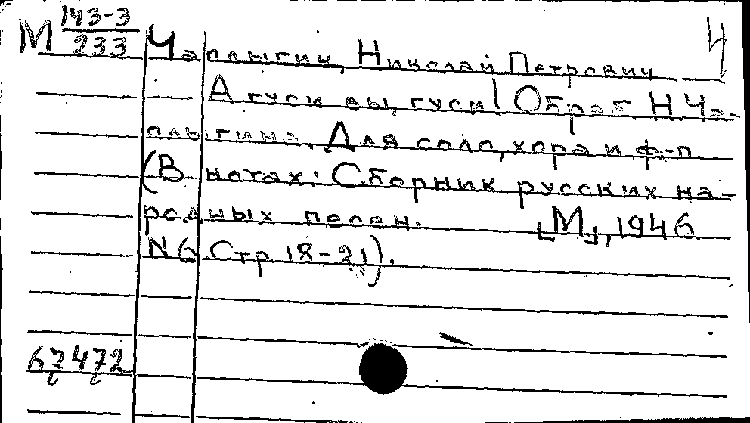 М 143-3/233 Чаплыгин, Николай Петрович 4
А гуси вы, гуси! Обраб. Н Ча-
плыгина. Для соло, хора и ф-п.
(В нотах: Сборник русских на-
родных песен. [М.], 1946
N6 Стр 18-21).
67472